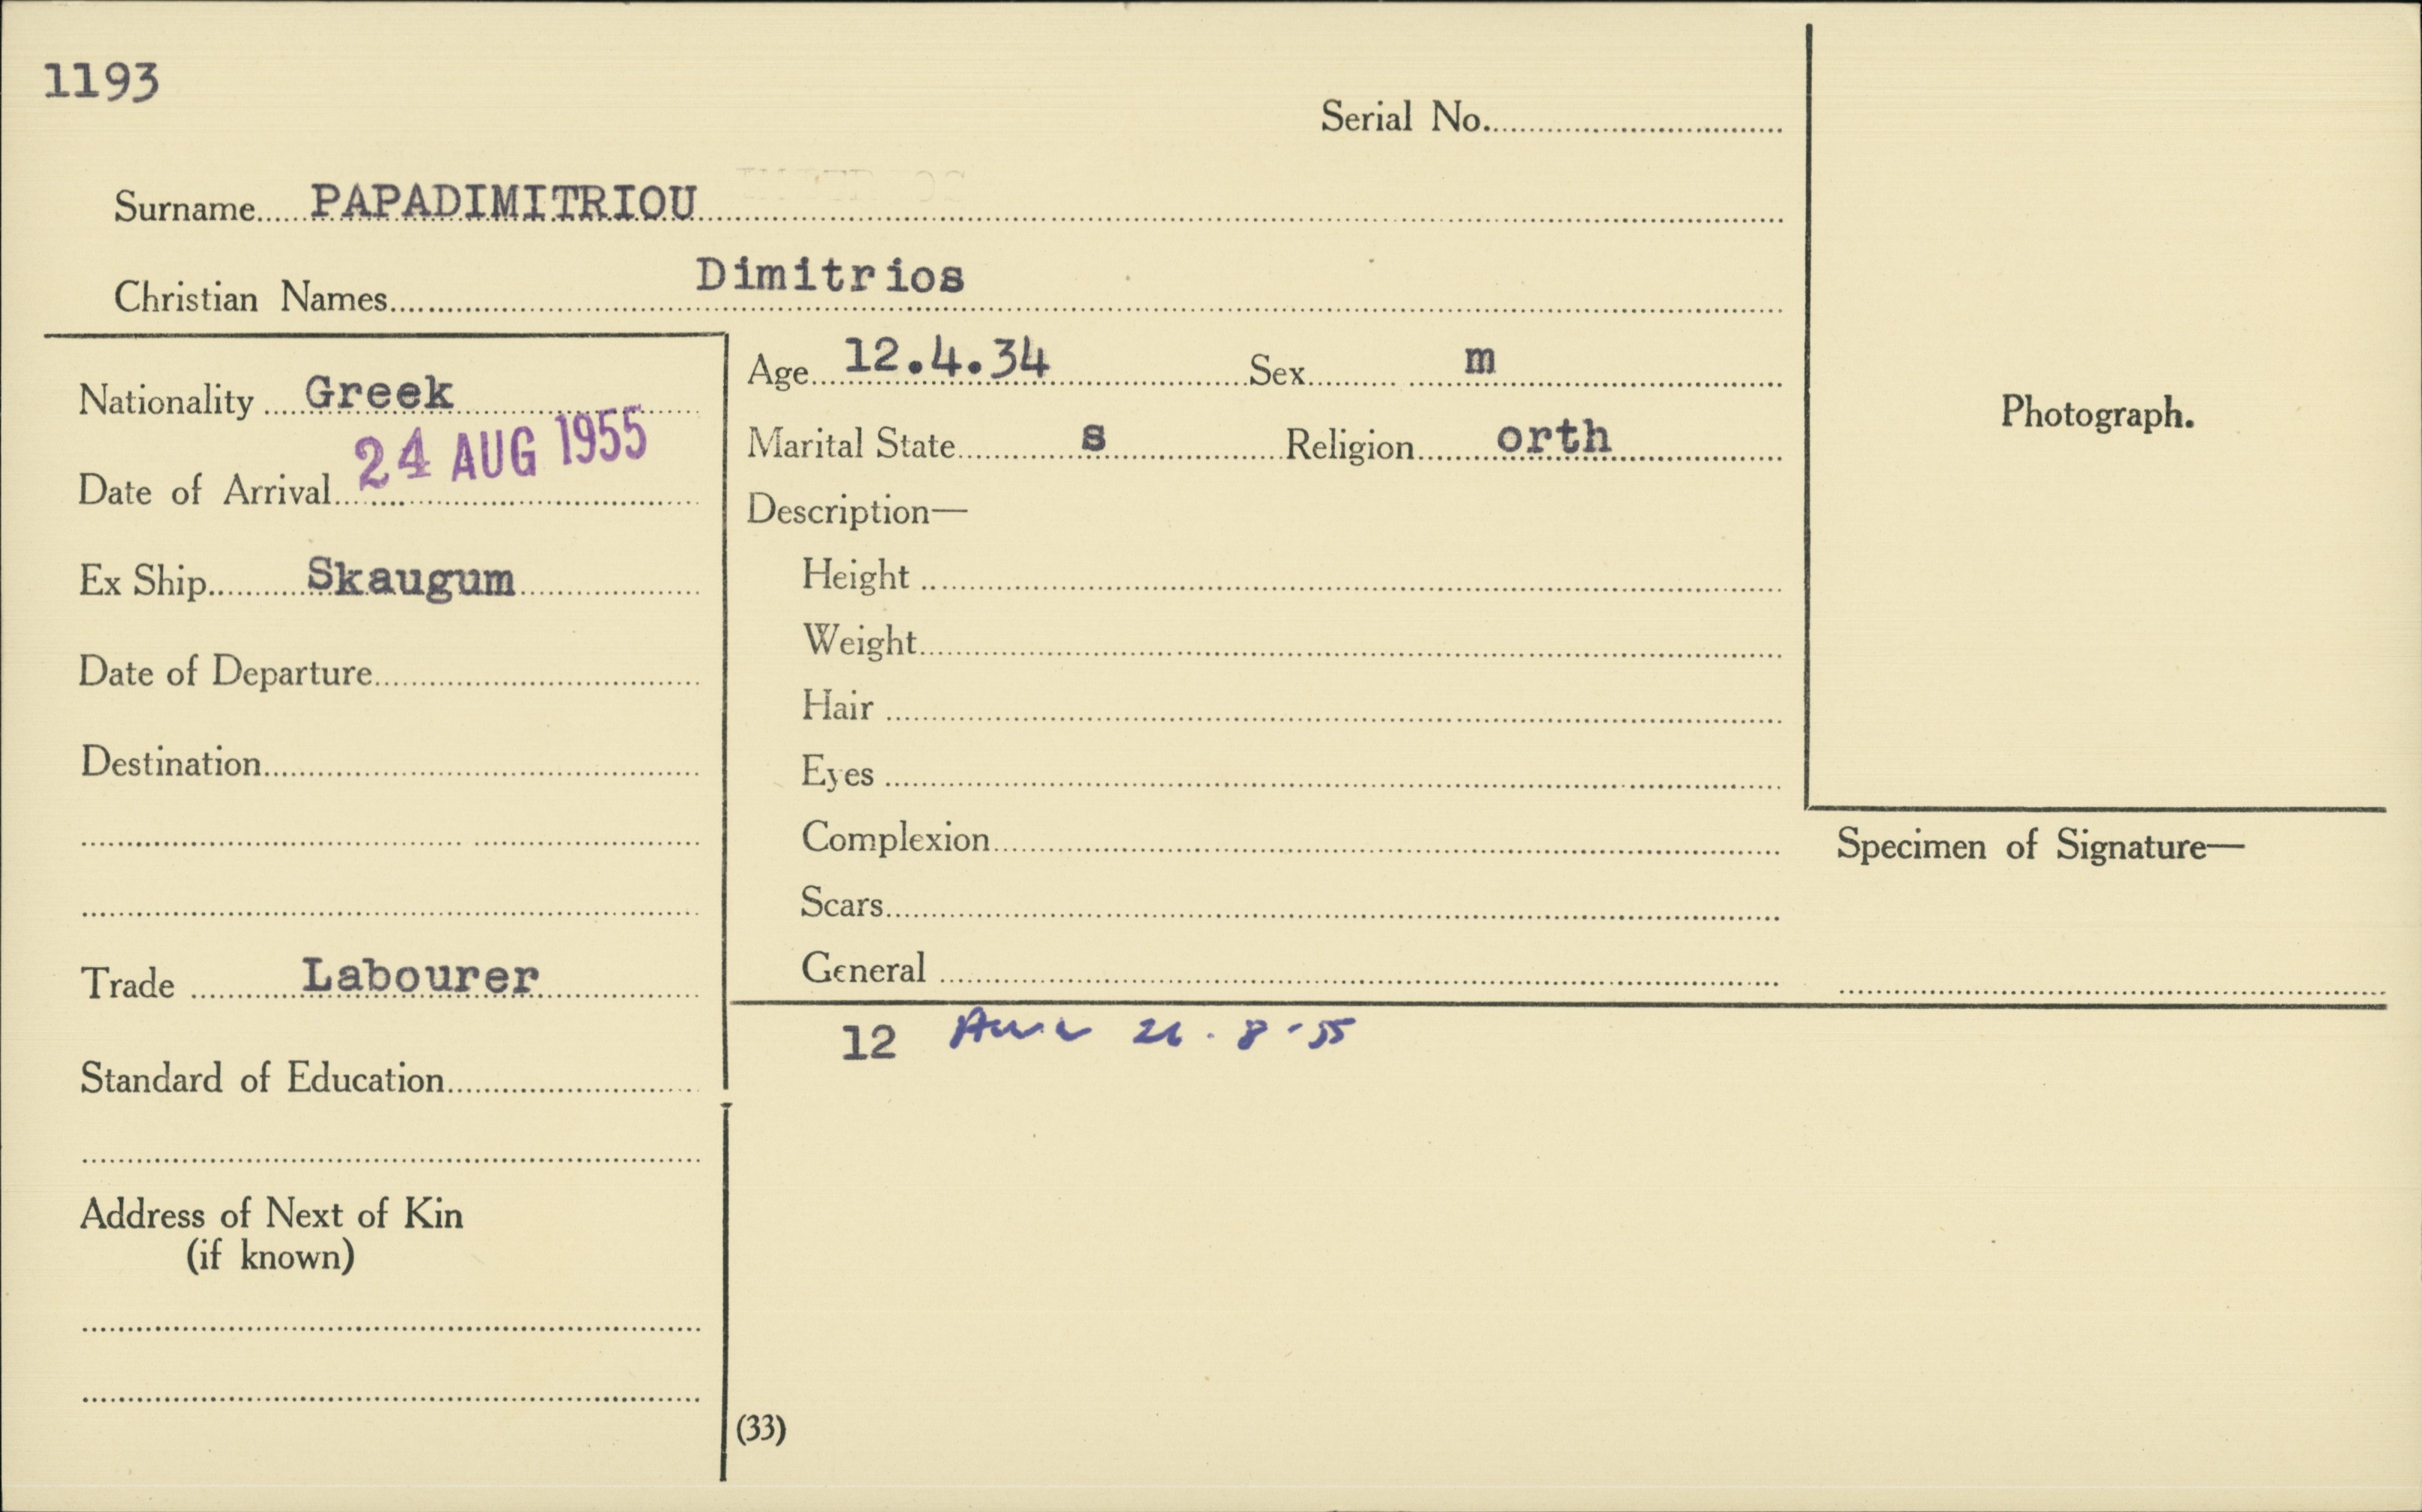 1193
Serial No.
Surname PAPADIMITRIOU
Christian Names Dimitrios
Nationality Greek
Date of Arrival 24 AUG 1955
Ex Ship Skaugum
Date of Departure
Destination
Trade Labourer
Standard of Education
Address of Next of Kin
(if known)
Age 12.4.34 Sex m
Marital State s Religion orth
Description—
Height
Weight
Hair
Eyes
Complexion
Scars
General
Photograph.
Specimen of Signature—
12
(33)